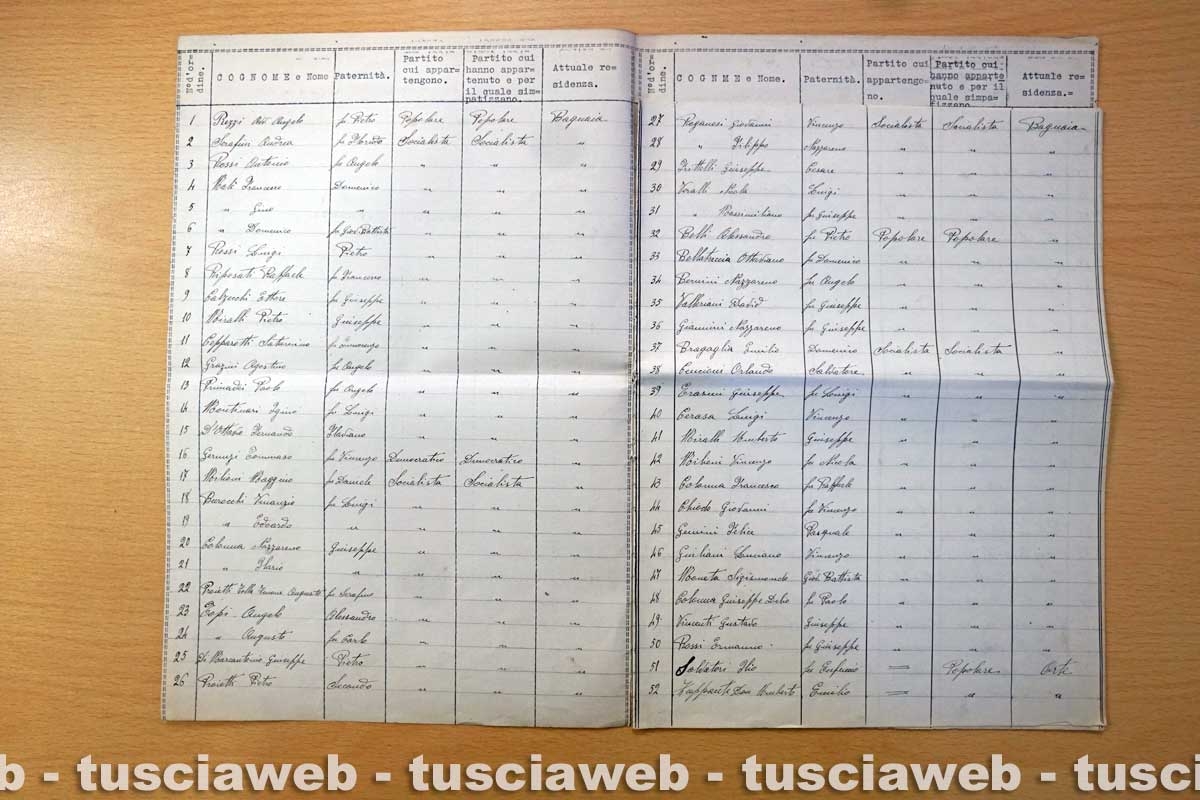 N°d'or= dine. COGNOME e Nome Paternità. Partito cui appar= tengono. Partito cui hanno appar= tenuto e per il quale sim= patizzano. Attuale re= sidenza.
1 Rezzi Avv Angelo fu Pietro Popolare Popolare Bagnaia
2 Serafini Andrea fu Socialista Socialista "
3 Rossi Antonio fu Angelo " " "
4 Francesco Domenico " " "
5 " Gino " " " "
6 " Domenico fu Giov Battista " " "
7 Rossi Luigi Pietro " " "
8 Riposati Raffaele fu Francesco " " "
9 Calzecchi Ettore fu Giuseppe " " "
10 Miralli Pietro Giuseppe " " "
11 Cepparotti Saturnino fu Innocenzo " " "
12 Grazini Agostino fu Angelo " " "
13 Primaddi Paolo fu Angelo " " "
14 Montenari Igino fu Luigi " " "
15 D'Ottavio Fernando Flaviano " " "
16 Tommaso fu Vincenzo Democratico Democratico "
17 Milioni fu Daniele Socialista Socialista "
18 Burocchi Venanzio fu Luigi " " "
19 " Edoardo " " " "
20 Colonna Nazzareno Giuseppe " " "
21 " Ilario " " " "
22 Proietti Augusto fu Serafino " " "
23 Topi Angelo Alessandro " " "
24 " Augusto fu Carlo " " "
25 Di Marcantonio Giuseppe Pietro " " "
26 Proietti Pietro Secondo " " "
N°d'or= dine. COGNME e Nome. Paternità. Partito cui appartengo= no. Partito cui hanno apparte nuto e per il quale simpa= tizzano. Attuale re= sidenza.=
27 Paganesi Giovanni Vincenzo Socialista Socialista Bagnaia
28 " Filippo Nazzareno " " "
29 Trittelli Giuseppe Cesare " " "
30 Nicola Luigi " " "
31 " Massimiliano fu Giuseppe " " "
32 Belli Alessandro fu Pietro Popolare Popolare "
33 Bellatreccia Ottaviano fu Domenico " " "
34 Bernini Nazzareno fu Angelo " " "
35 Valeriani David fu Giuseppe " " "
36 Giannini Nazzareno fu Giuseppe " " "
37 Bragaglia Emilio Domenico Socialista Socialista "
38 Cencioni Orlando Salvatore " " "
39 Erasmi Giuseppe fu Luigi " " "
40 Cerasa Luigi Vincenzo " " "
41 Miralli Umberto Giuseppe " " "
42 Milioni Vincenzo fu Nicola " " "
43 Colonna Francesco fu Raffaele " " "
44 Chiodo Giovanni fu Vincenzo " " "
45 Gemini Felice Pasquale " " "
46 Giuliani Luciano Vincenzo " " "
47 Moneta Sigismondo Giov Battista " " "
48 Colonna Giuseppe Delio fu Paolo " " "
49 Vincenti Gustavo Giuseppe " " "
50 Rossi Ermanno fu Giuseppe " " "
51 Salvatori Ilio fu Eufemio = Popolare Orte
52 Don Umberto Emilio = " "
b - tusciaweb - tusciaweb - tusciaweb - tusci